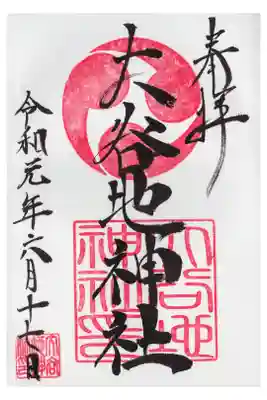 奉拝
大谷地神社
大谷地
神社
之印
令和元年六月十七日